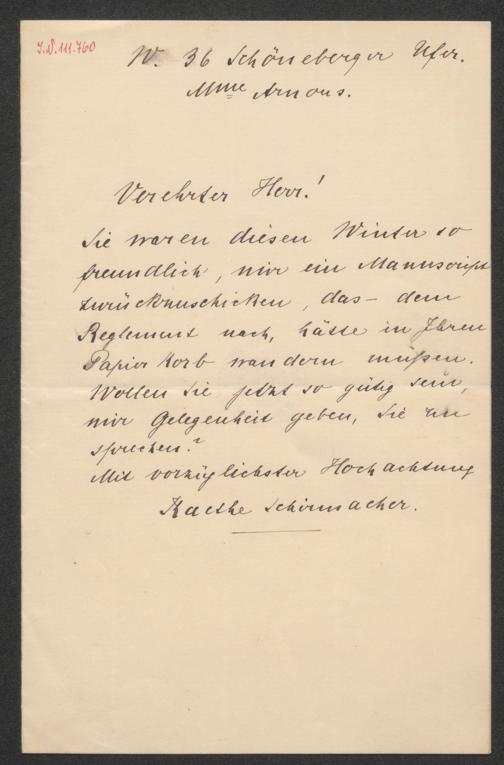 J.N. 111.760
W. 36 Schöneberger Ufer.
Mme Arnous.
Verehrter Herr!
Sie waren diesen Winter so
freundlich, mir ein Manuscript
zurückzuschicken, das – dem
Reglement nach, hätte in Ihren
Papierkorb wandern müßen.
Wollen Sie jetzt so gütig sein,
mir Gelegenheit geben, Sie zu
sprechen?
Mit vorzüglichster Hochachtung
Kaethe Schirmacher.